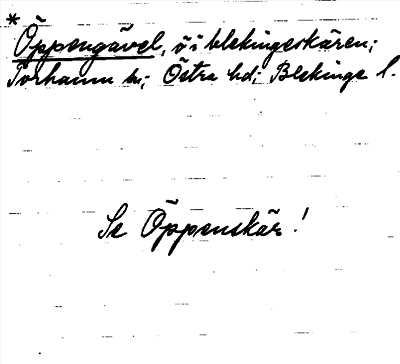 *
Öppengävel, ö i blekingeskären;
Torhamn sn; Östra hd; Blekinge l.
Se Öppenskär!